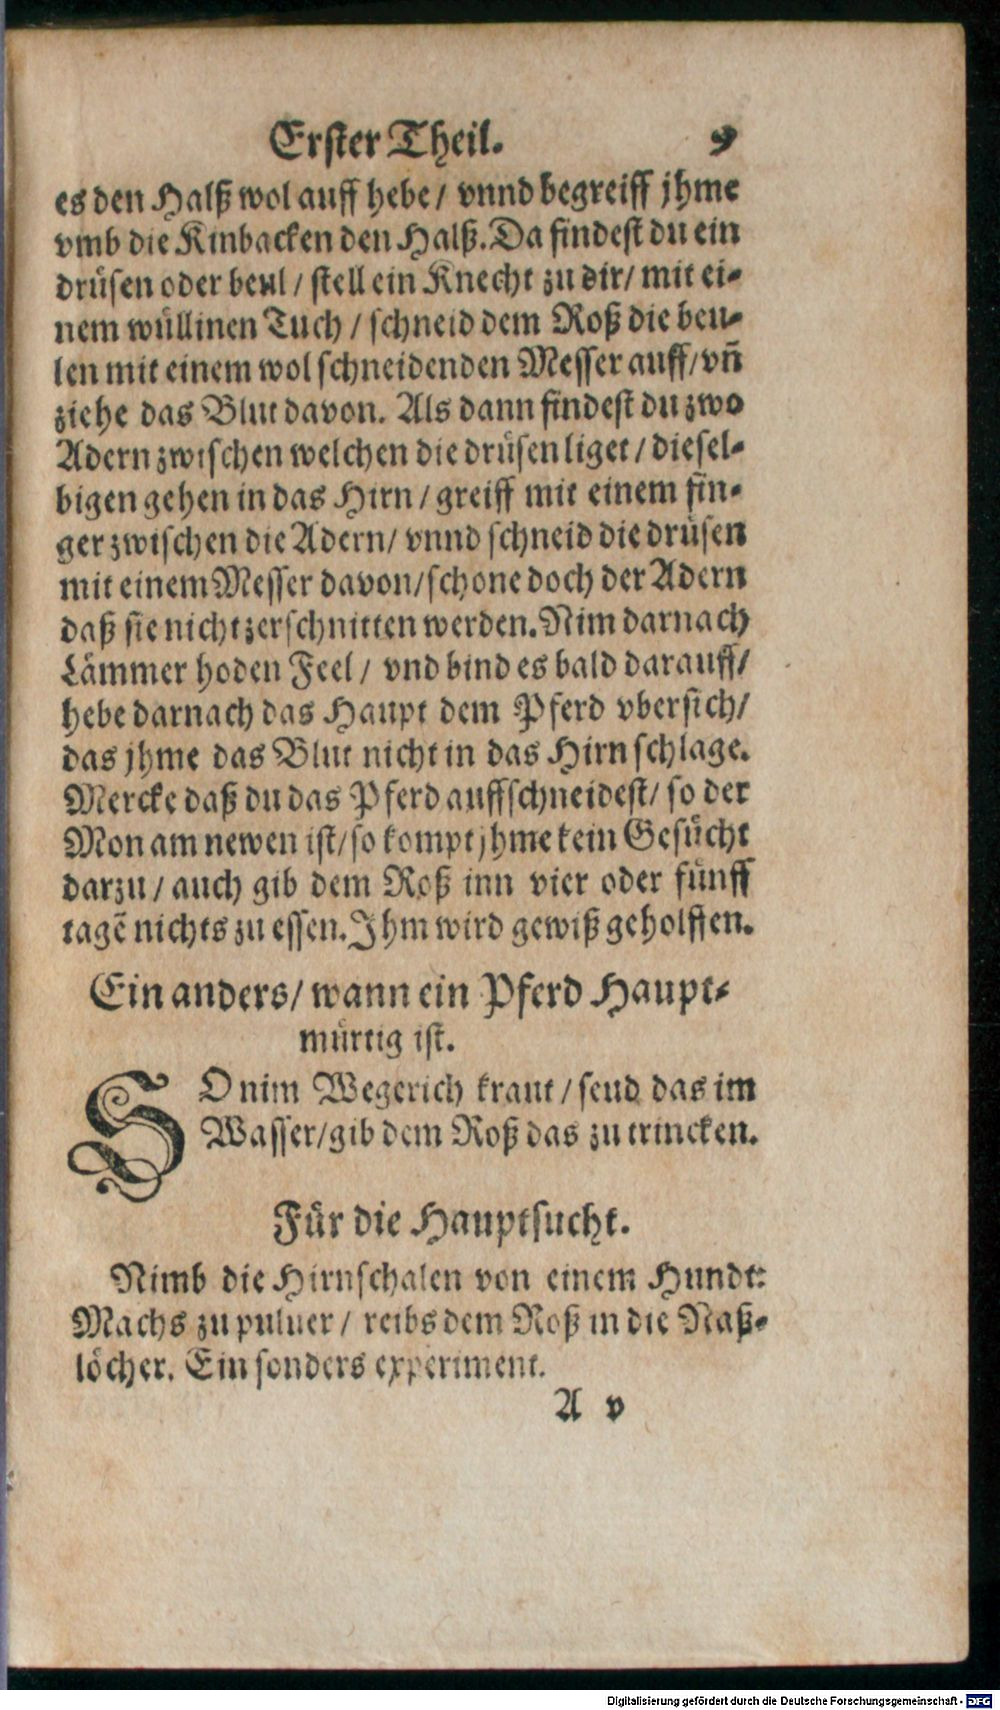 Erster Theil. 9
es den Halß wol auff hebe / vnnd begreiff jhme
vmb die Kinbacken den Halß. Da findest du ein
drüsen oder beul / stell ein Knecht zu dir / mit ei-
nem wüllinen Tuch / schneid dem Roß die beu-
len mit einem wol schneidenden Messer auff / vñ
ziehe das Blut davon. Als dann findest du zwo
Adern zwischen welchen die drüsen liget / diesel-
bigen gehen in das Hirn / greiff mit einem fin-
ger zwischen die Adern / vnnd schneid die drüsen
mit einem Messer davon / schone doch der Adern
daß sie nicht zerschnitten werden. Nim darnach
Lämmer hoden Feel / vnd bind es bald darauff /
hebe darnach das Haupt dem Pferd vbersich /
das jhme das Blut nicht in das Hirn schlage.
Mercke daß du das Pferd auffschneidest / so der
Mon am newen ist / so kompt jhme kein Gesücht
darzu / auch gib dem Roß inn vier oder fünff
tagẽ nichts zu essen. Ihm wird gewiß geholffen.
Ein anders / wann ein Pferd Haupt-
mürtig ist.
SO nim Wegerich kraut / seud das im
Wasser / gib dem Roß das zu trincken.
Für die Hauptsucht.
Nimb die Hirnschalen von einem Hundt:
Machs zu puluer / reibs dem Roß in die Naß-
löcher. Ein sonders experiment.
A v
Digitalisierung gefördert durch die Deutsche Forschungsgemeinschaft - DFG